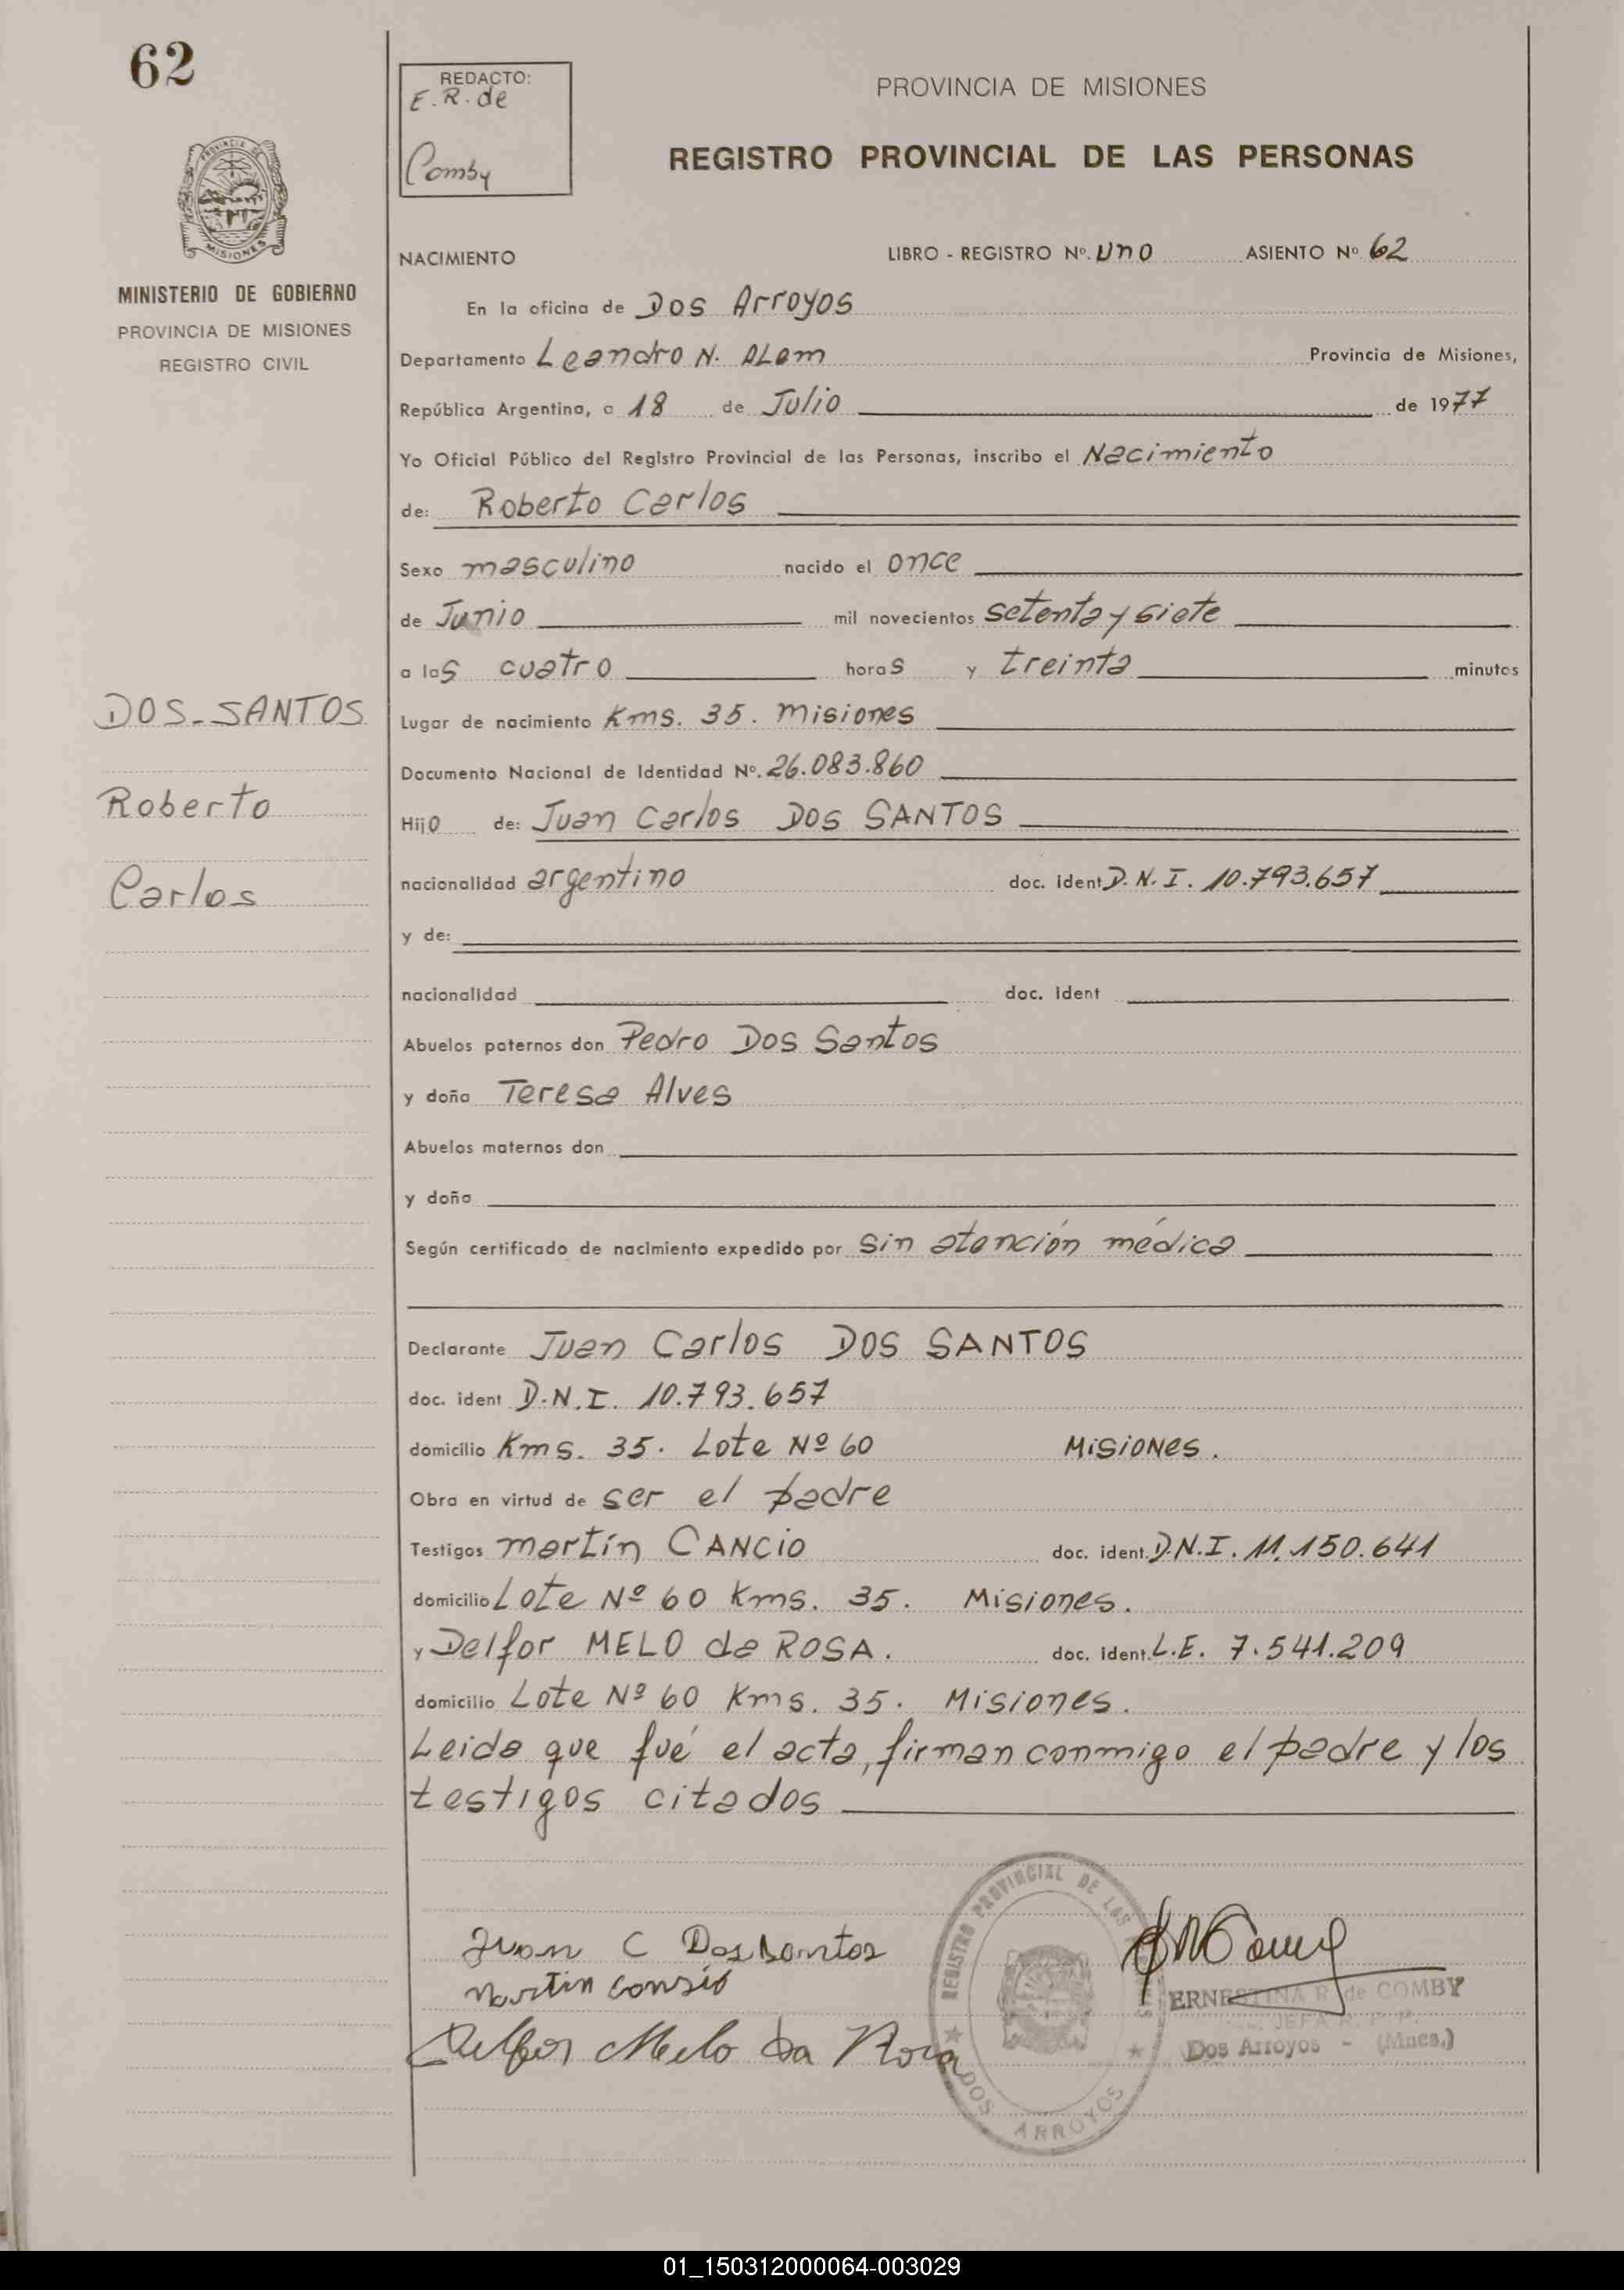 62
REDACTO:
E.R. de
Comby
PROVINCIA DE MISIONES
REGISTRO PROVINCIAL DE LAS PERSONAS
PROVINCIA DE
MISIONES
MINISTERIO DE GOBIERNO
PROVINCIA DE MISIONES
REGISTRO CIVIL
NACIMIENTO LIBRO - REGISTRO Nº. Uno ASIENTO Nº 62
En la oficina de Dos Arroyos
Departamento Leandro N. ALem Provincia de Misiones,
República Argentina, a 18 de Julio de 1977
Yo Oficial Público del Registro Provincial de las Personas, inscribo el Nacimiento
de: Roberto Carlos
Sexo masculino nacido el once
de Junio mil novecientos setenta y siete
a las cuatro horas y treinta minutos
DOS-SANTOS
Roberto
Carlos
Lugar de nacimiento Kms. 35. Misiones
Documento Nacional de Identidad Nº. 26.083.860
Hijo de: Juan Carlos DOS SANTOS
nacionalidad argentino doc. ident D.N.I. 10.793.657
y de:
nacionalidad doc. ident
Abuelos paternos don Pedro Dos Santos
y doña Teresa Alves
Abuelos maternos don
y doña
Según certificado de nacimiento expedido por sin atención médica
Declarante Juan Carlos DOS SANTOS
doc. ident D.N.I. 10.793.657
domicilio Kms. 35. Lote Nº 60 Misiones.
Obra en virtud de ser el padre
Testigos martín CANCIO doc. ident. D.N.I. 11.150.641
domicilio Lote Nº 60 Kms. 35. Misiones.
y Delfor MELO da ROSA. doc. ident. L.E. 7.541.209
domicilio Lote Nº 60 Kms. 35. Misiones.
Leida que fué el acta, firman conmigo el padre y los
testigos citados
Juan C Dos Santos
Martin Consio
Delfor Melo Da Rosa
REGISTRO PROVINCIAL DE LAS
DOS ARROYOS
ERNESTINA R. de COMBY
JEFA R. P. P.
Dos Arroyos - (Mnes.)
01_150312000064-003029